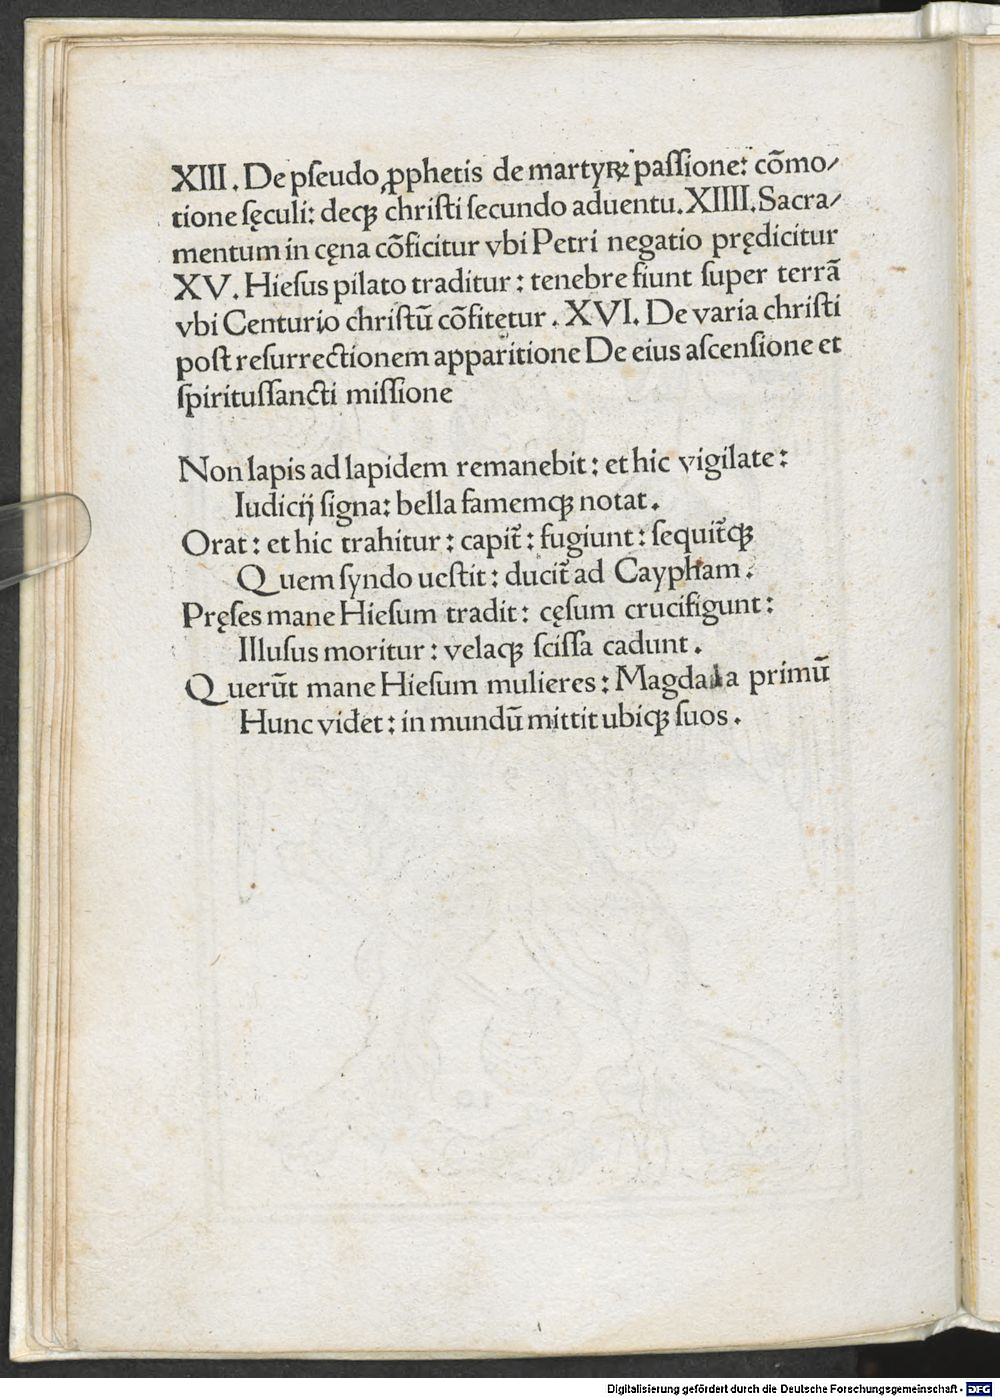 XIII. De pſeudo ꝓphetis de martyꝝ paſſione: cõmo/
tione ſęculi: decꝫ chriſti ſecundo aduentu. XIIII. Sacra/
mentum in cęna cõficitur vbi Petri negatio prędicitur
XV. Hieſus pilato traditur: tenebre fiunt ſuper terrã
vbi Centurio chriſtũ cõfitetur. XVI. De varia chriſti
poſt reſurrectionem apparitione De eius aſcenſione et
ſpirituſſancti miſſione
Non lapis ad lapidem remanebit: et hic vigilate:
Iudicij ſigna: bella famemqꝫ notat.
Orat: et hic trahitur: capit̃: fugiunt: ſequit̃qꝫ
Quem ſyndo ueſtit: ducit̃ ad Caypham.
Pręſes mane Hieſum tradit: cęſum crucifigunt:
Illuſus moritur: velaqꝫ ſciſſa cadunt.
Querũt mane Hieſum mulieres: Magdala primũ
Hunc videt: in mundũ mittit ubiqꝫ ſuos.
Digitalisierung gefördert durch die Deutsche Forschungsgemeinschaft - DFG